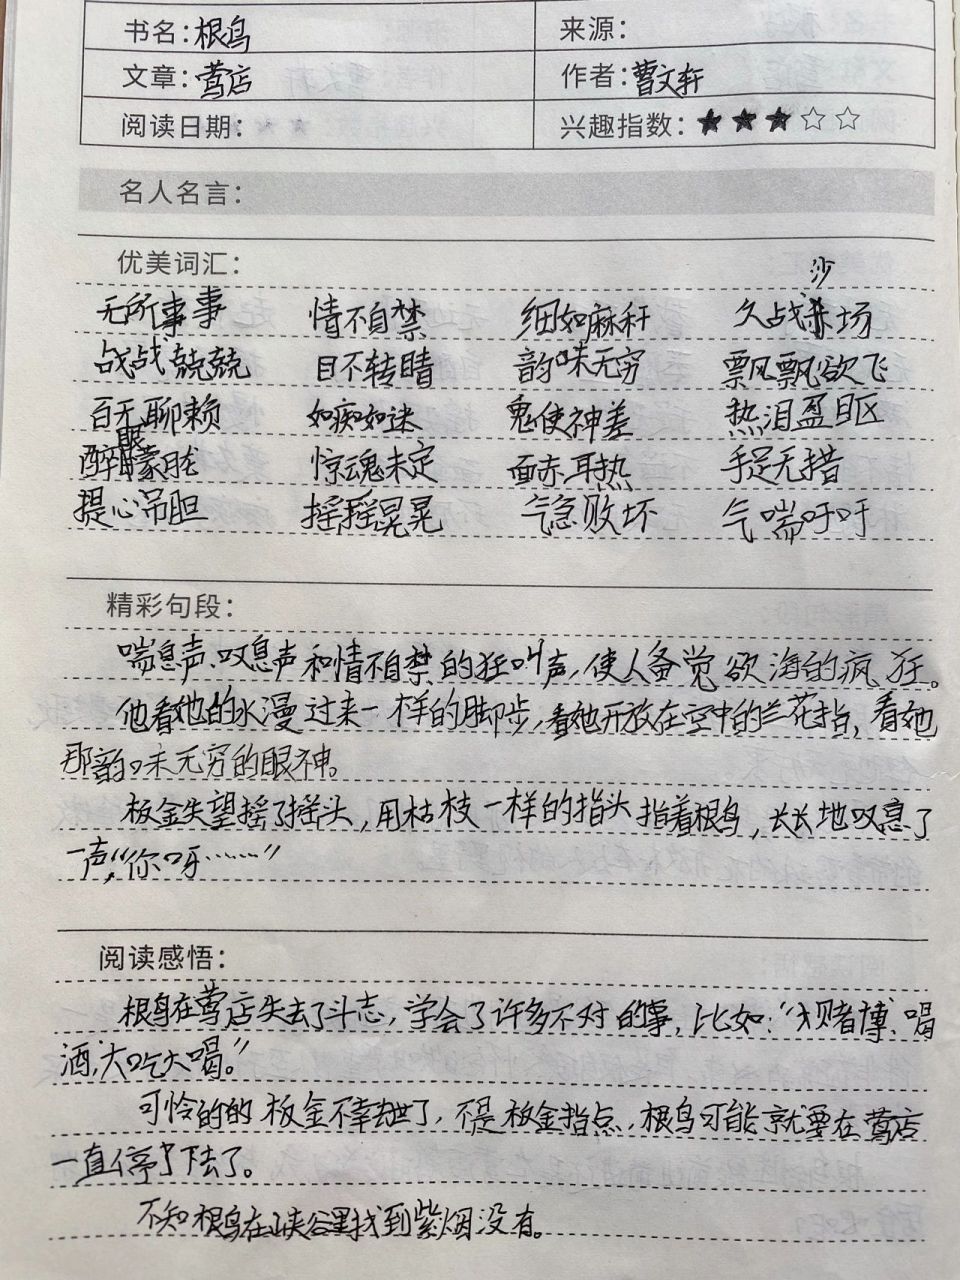 书名：根鸟 来源：
文章：莺店 作者：曹文轩
阅读日期： 兴趣指数：★★★☆☆
名人名言：
优美词汇：
沙
无所事事 情不自禁 细如麻秆 久战场
战战兢兢 目不转睛 韵味无穷 飘飘欲飞
百无聊赖 如痴如迷 鬼使神差 热泪盈眶
醉眼朦胧 惊魂未定 面赤耳热 手足无措
提心吊胆 摇摇晃晃 气急败坏 气喘吁吁
精彩句段：
喘息声、叹息声和情不自禁的狂叫声，使人备觉欲海的疯狂。
他看她的水漫过来一样的脚步，看她开放在空中的兰花指，看她
那韵味无穷的眼神。
板金失望摇了摇头，用枯枝一样的指头指着根鸟，长长地叹息了
一声，“你呀……”
阅读感悟：
根鸟在莺店失去了斗志，学会了许多不对的事，比如：“赌博、喝
酒，大吃大喝。”
可怜的的板金不幸去世了，不是板金指点，根鸟可能就要在莺店
一直停了下去了。
不知根鸟在峡谷里找到紫烟没有。